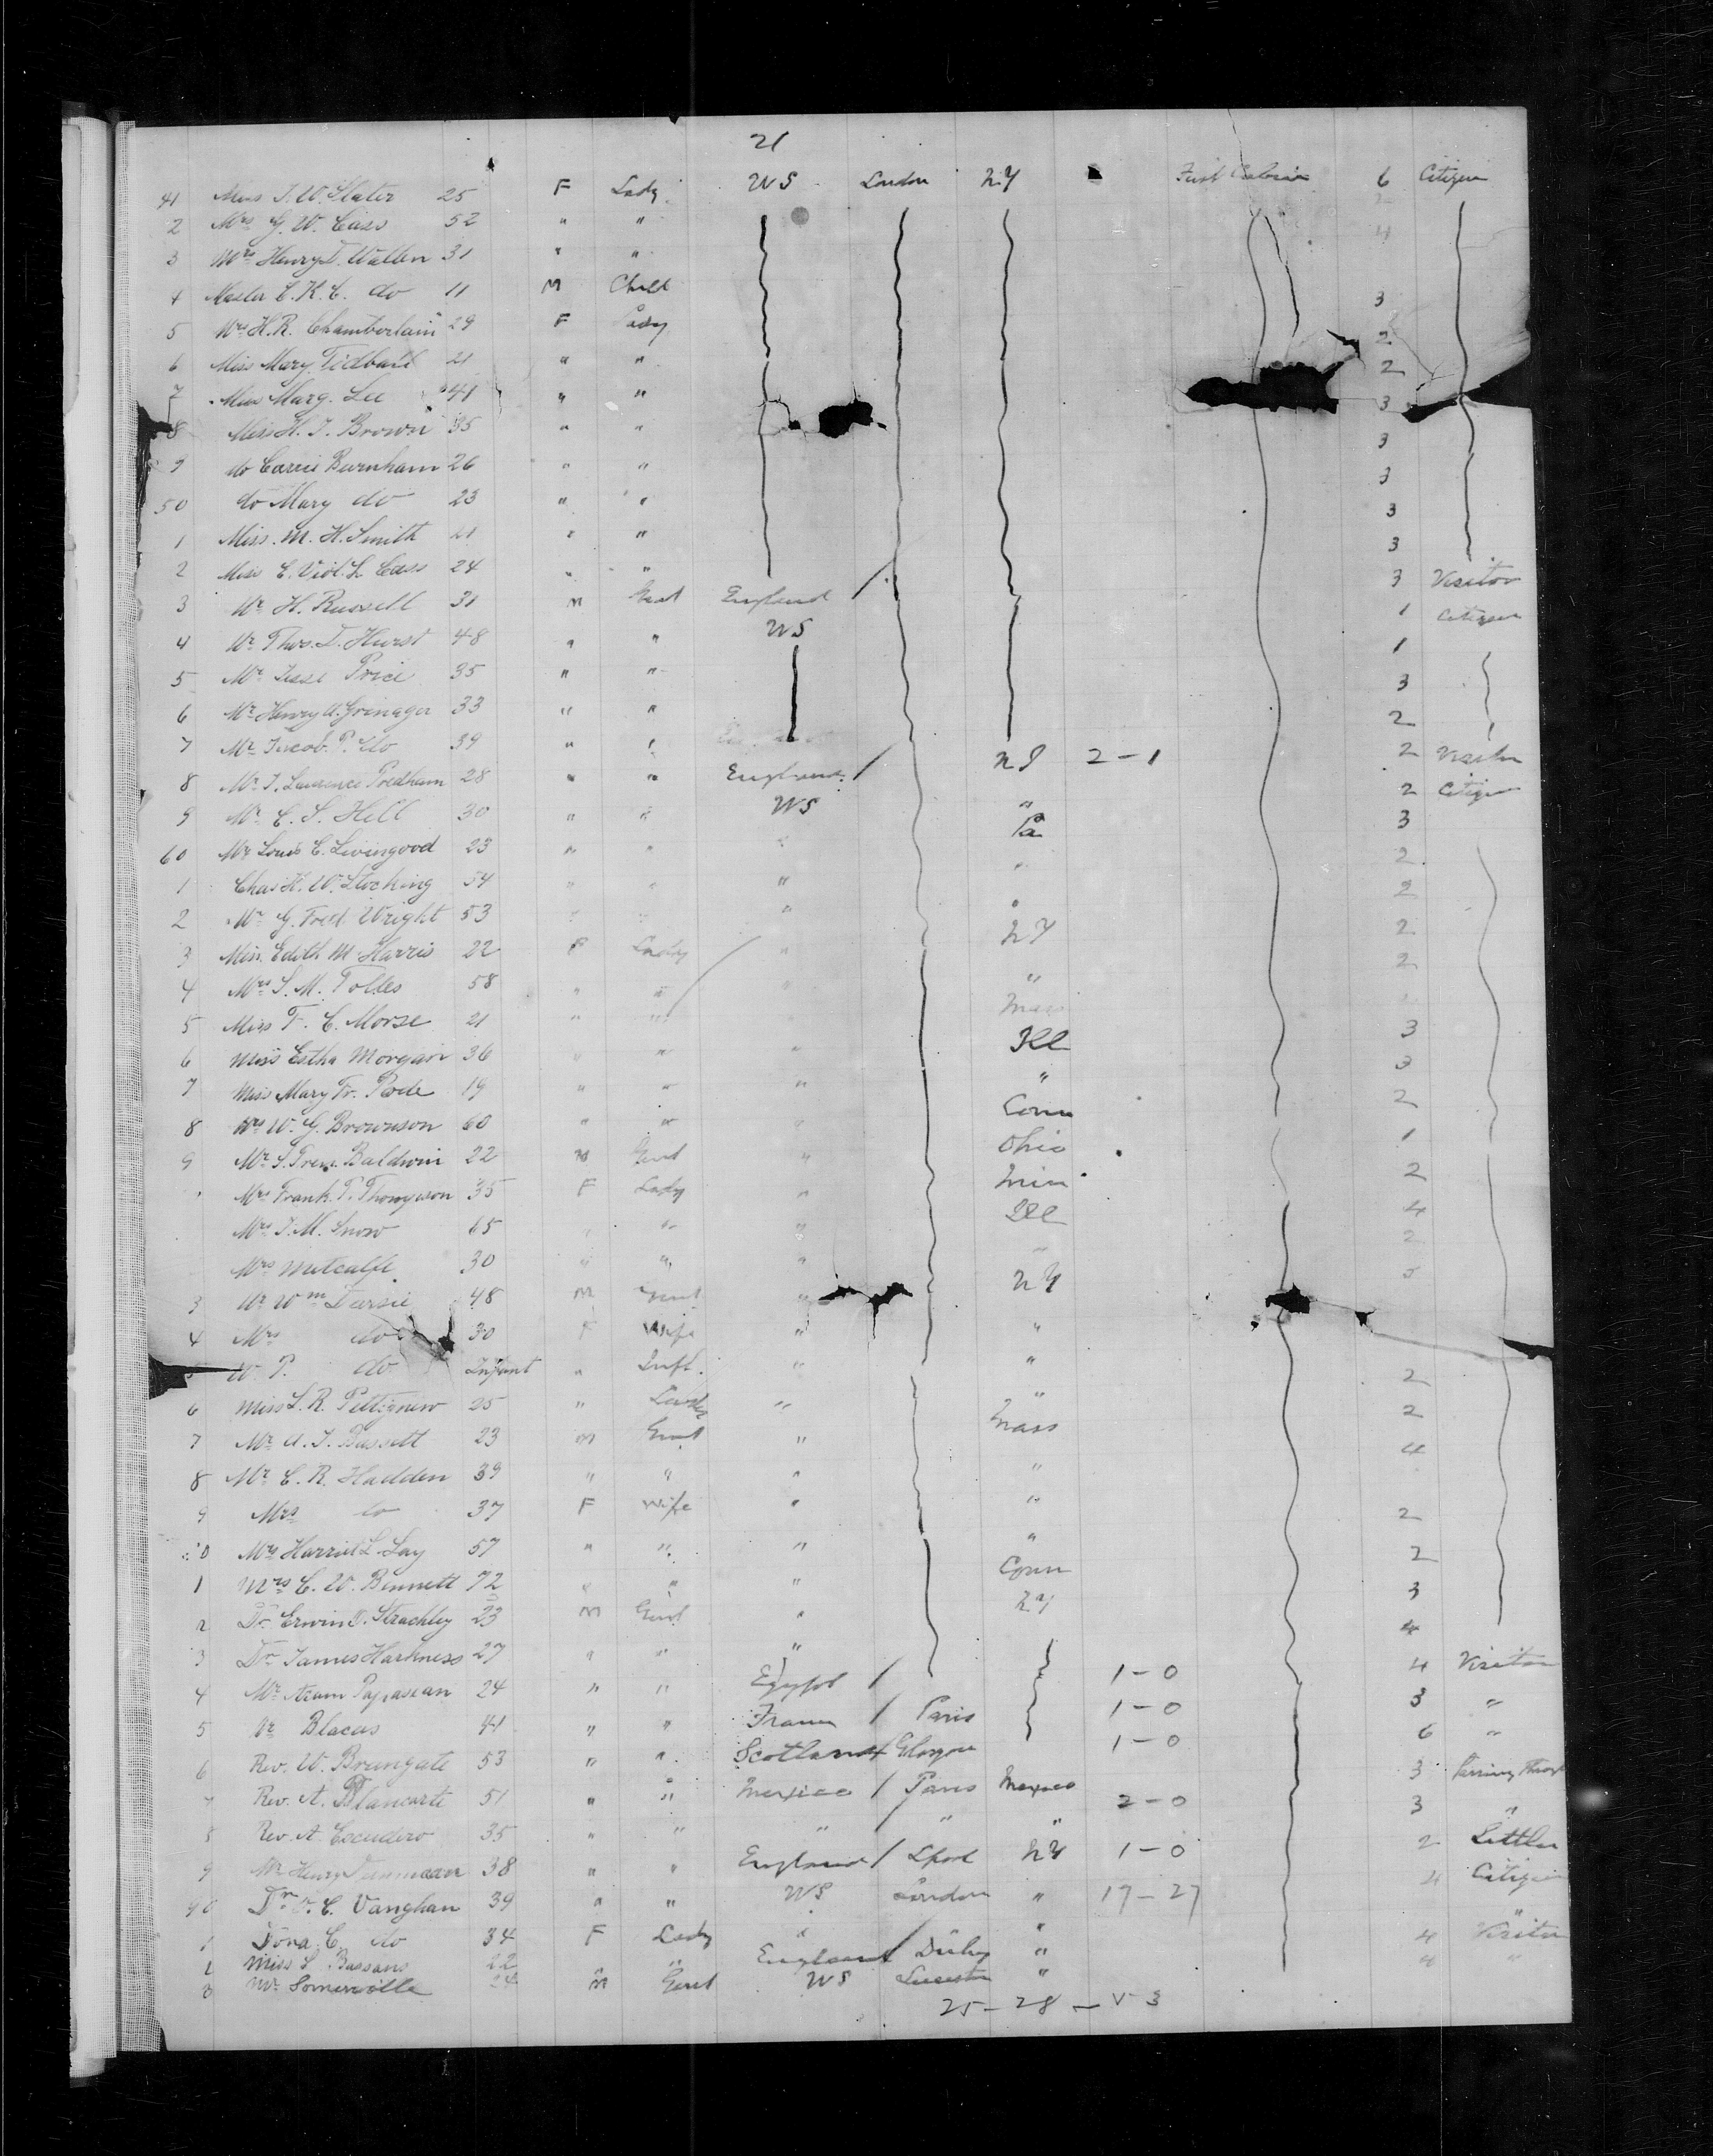 21
41 Miss J. W. Slater 25 F Lady US London N.Y First Cabin 6 Citizen
2 Mrs G. W. Cass 52 " " 4
3 Mrs Henry D. Wallen 31 " "
4 Master E. K. C. do 11 M Child 3
5 Mrs H. R. Chamberlain 29 F Lady 2
6 Miss Mary Tidball 21 " " 2
7 Miss Marg. Lee 41 " " 3
8 Miss H. J. Brown 35 " " 3
9 do Carrie Burnham 26 " " 3
50 do Mary do 23 " " 3
1 Miss M. H. Smith 21 " " 3
2 Miss E. Cass 24 " " 3 Visitor
3 Mr H. Russell 31 M Gent England / 1 Citizen
4 Mr Thos. D. Hurst 48 " " US 1
5 Mr Jesse Price 35 " " 3
6 Mr Henry A. Grinager 33 " " 2
7 Mr Jacob P. do 39 " " 2 Visitor
8 Mr J. Lawrence Predham 28 " " England / NJ 2-1 2 Citizen
9 Mr C. S. Hill 30 " " US " 3
60 Mr Louis C. Livingood 23 " " " Pa 2
1 Chas H. W. Stocking 54 " " " " 2
2 Mr G. Fred. Wright 53 " " " " 2
3 Miss Edith M Harris 22 F Lady " NY 2
4 Mrs S. M. Tolles 58 " " " "
5 Miss F. C. Morse 21 " " " Mass 3
6 Miss Estha Morgan 36 " " " Ill 3
7 Miss Mary Fr. Poole 19 " " " " 2
8 Mrs W. G. Brownson 60 " " " Conn 1
9 Mr S. Baldwin 22 M Gent " Ohio 2
Mrs Frank P. Thompson 35 F Lady " Min 4
Mrs J. M. Snow 65 " " " Ill 2
Mrs Metcalfe 30 " " " " 5
3 Mr Wm Darsie 48 M Gent " NY
4 Mrs do 30 F Wife " "
W. P. do Infant " Inft. " " 2
6 Miss L. R. Pettigrew 25 " Lady " " 2
7 Mr A. J. Bassett 23 M Gent " Mass 4
8 Mr C. R. Hadden 39 " " " "
9 Mrs do 37 F Wife " " 2
0 Mrs Harriet L. Lay 57 " " " " 2
1 Mrs C. W. Bennett 72 " " " Conn 3
2 Dr Erwin Strachley 23 M Gent " NY 4
3 Dr James Harkness 27 " " " 4 Visitor
4 Mr Aram Papasean 24 " " Egypt / 1-0 3 "
5 Mr Blacas 41 " " France / Paris 1-0 6 "
6 Rev. W. Brungate 53 " " Scotland / Glasgow 1-0 3 Passing through
7 Rev. A. Plancarte 51 " " Mexico / Paris Mexico 3 "
8 Rev. A. Escudero 35 " " " / " " 2-0 2 Settler
9 Mr Henry 38 " " England / Lpool NY 1-0 4 Citizen
90 Dr V. C. Vaughan 39 " " US London " 17-27 "
1 Dora C. do 34 F Lady " " 4 Visitor
2 Miss S. Bassans 22 " " England / " 4 "
3 Mr Somerville 24 M Gent US Leicester "
25-28-53